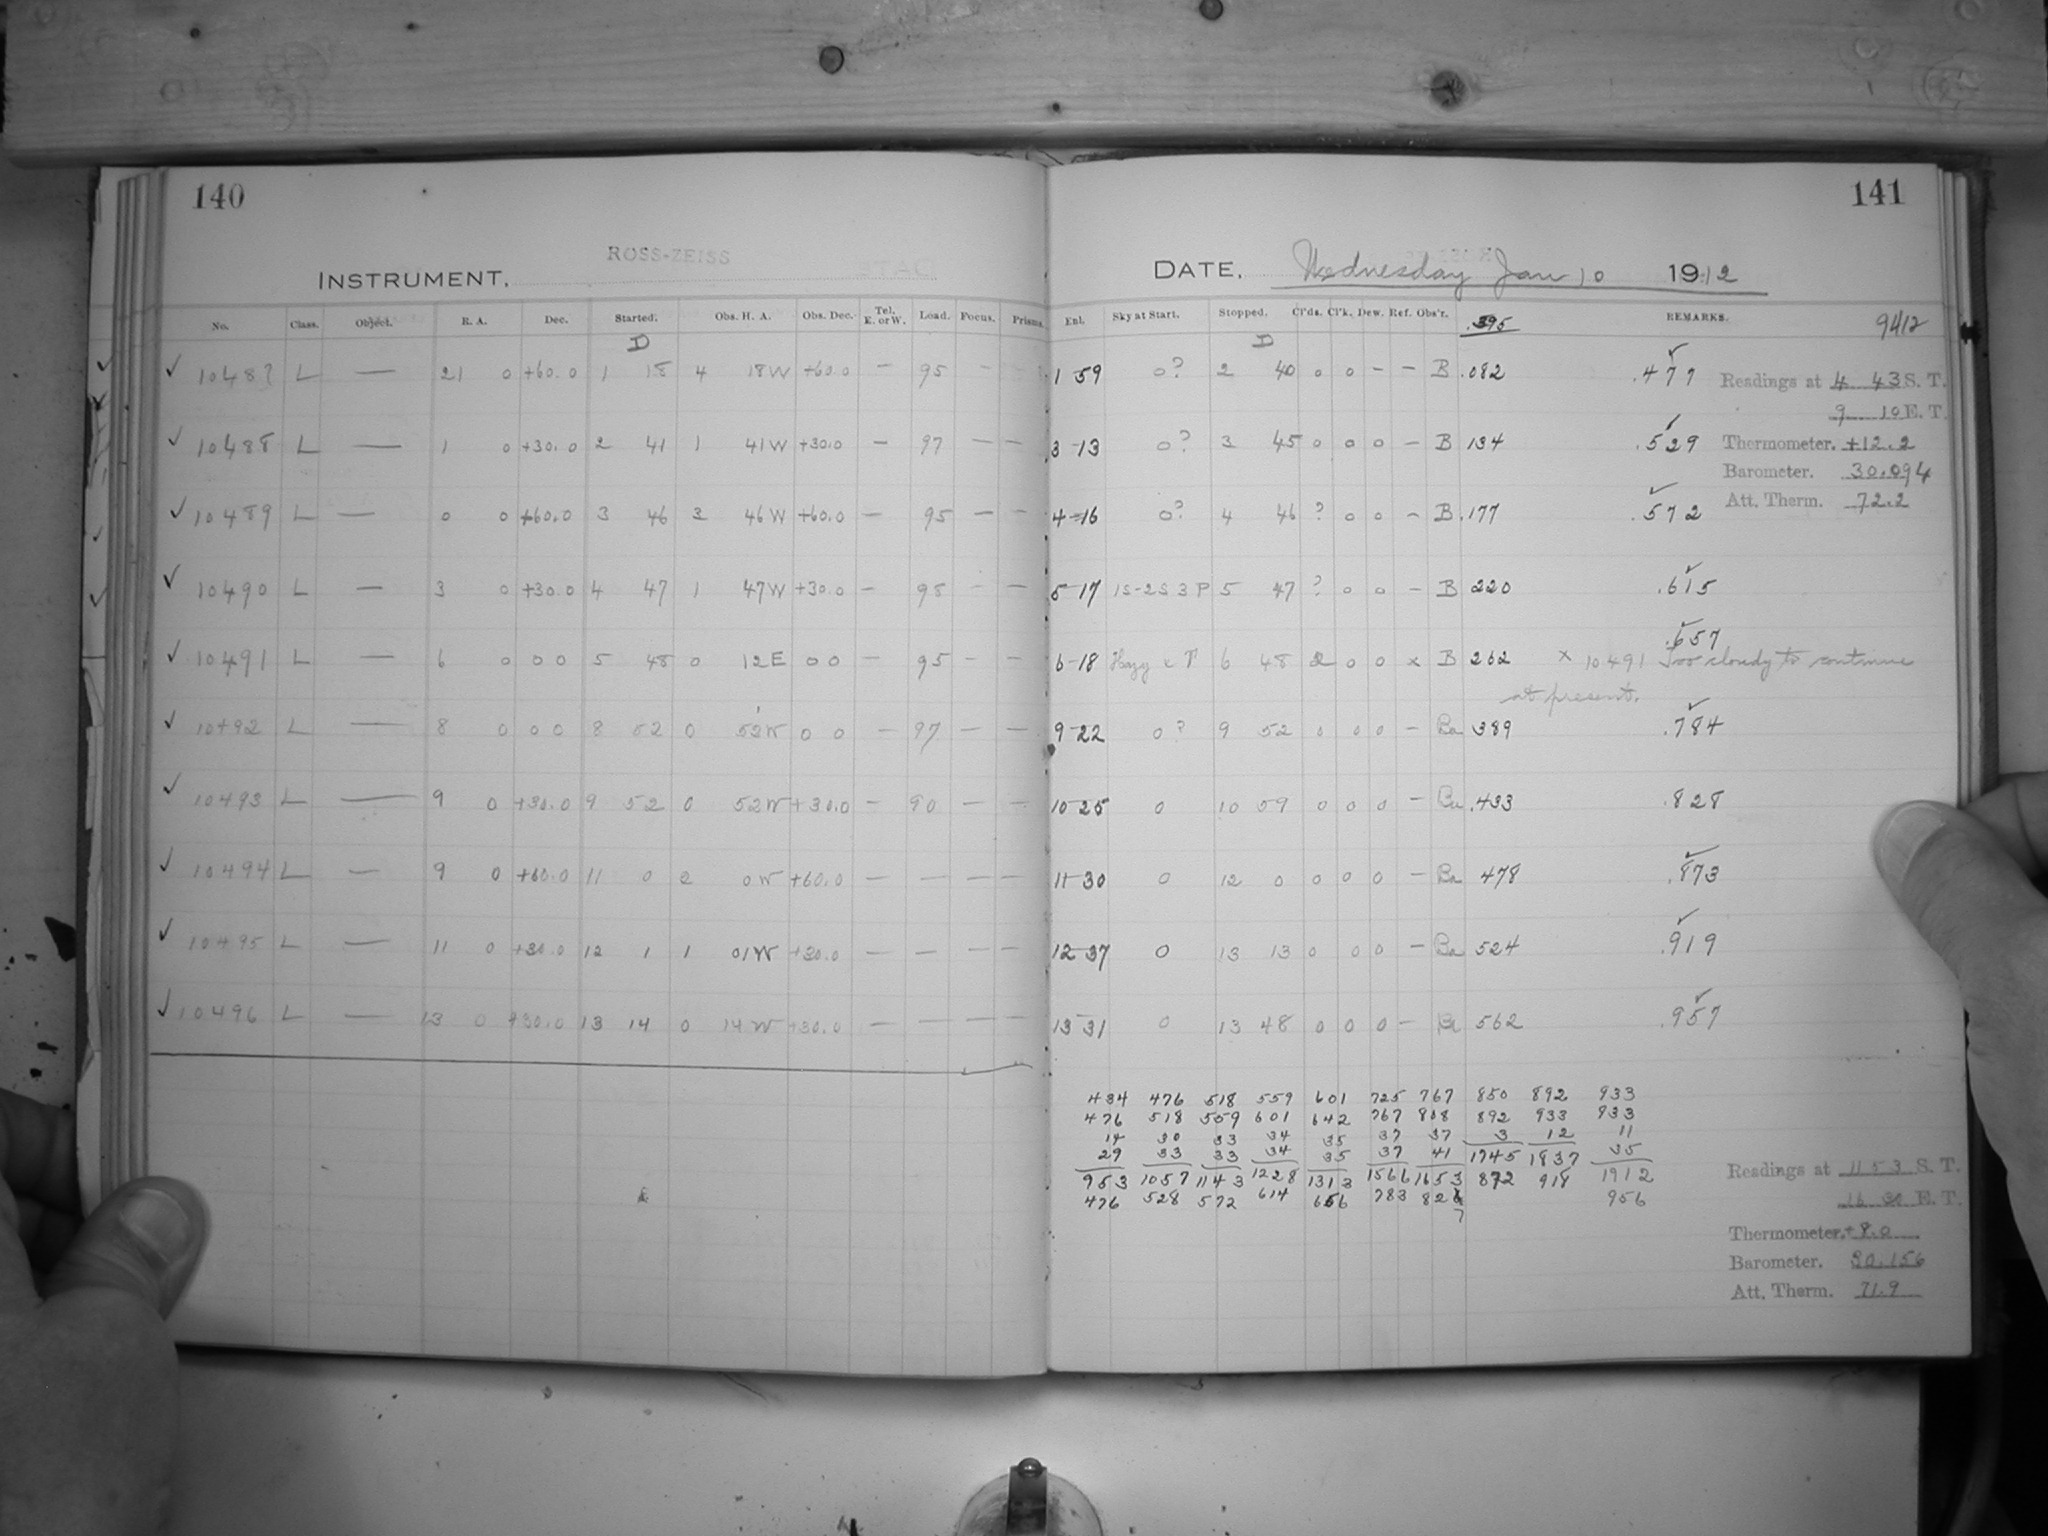 140
ROSS-ZEISS
INSTRUMENT.
No. Class. Object. R. A. Dec. Started. Obs. H. A. Obs. Dec. Tel. E. or W. Load. Focus. Prisms.
D
10487 L — 21 0 +60.0 1 18 4 18W +60.0 — 95 - -
10488 L — 1 0 +30.0 2 41 1 41W +30.0 — 97 — —
10489 L — 0 0 +60.0 3 46 3 46W +60.0 — 95 — —
10490 L — 3 0 +30.0 4 47 1 47W +30.0 — 95 — —
10491 L — 6 0 0 0 5 48 0 12E 0 0 — 95 — —
10492 L — 8 0 0 0 8 52 0 52W 0 0 — 97 — —
10493 L — 9 0 +30.0 9 52 0 52W +30.0 — 90 — —
10494 L — 9 0 +60.0 11 0 2 0W +60.0 — — — —
10495 L — 11 0 +30.0 12 1 1 01W +30.0 — — — —
10496 L — 13 0 +30.0 13 14 0 14W +30.0 — — — —
141
DATE. Wednesday Jan 10 1912
Enl. Sky at Start. Stopped. Cl'ds. Cl'k. Dew. Ref. Obs'r. .395 REMARKS. 9412
D
1 59 0? 2 40 0 0 - - B .082 .477
3 13 0? 3 45 0 0 0 - B 134 .529
4 16 0? 4 46 ? 0 0 - B .177 .572
5-17 1S-2S 3 P 5 47 ? 0 0 - B 220 .615
.657
6-18 Hazy & P 6 48 2 0 0 x B 262 x 10491 Too cloudy to continue
at present.
9-22 0? 9 52 0 0 0 - Ba 389 .784
10-25 0 10 59 0 0 0 - Ba .433 .828
11-30 0 12 0 0 0 0 - Ba 478 .873
12 37 0 13 13 0 0 0 - Ba 524 .919
13 31 0 13 48 0 0 0 - Ba 562 .957
Readings at 4 43 S. T.
9 10 E. T.
Thermometer. +12.2
Barometer. 30.094
Att. Therm. 72.2
434 476 518 559 601 725 767 850 892 933
476 518 559 601 642 767 808 892 933 933
14 30 33 34 35 37 37 3 12 11
29 33 33 34 35 37 41 1745 1837 35
953 1057 1143 1228 1313 1566 1653 872 918 1912
476 528 572 614 656 783 826 956
7
Readings at 11 53 S. T.
16 20 E. T.
Thermometer. +8.0
Barometer. 30.156
Att. Therm. 71.9